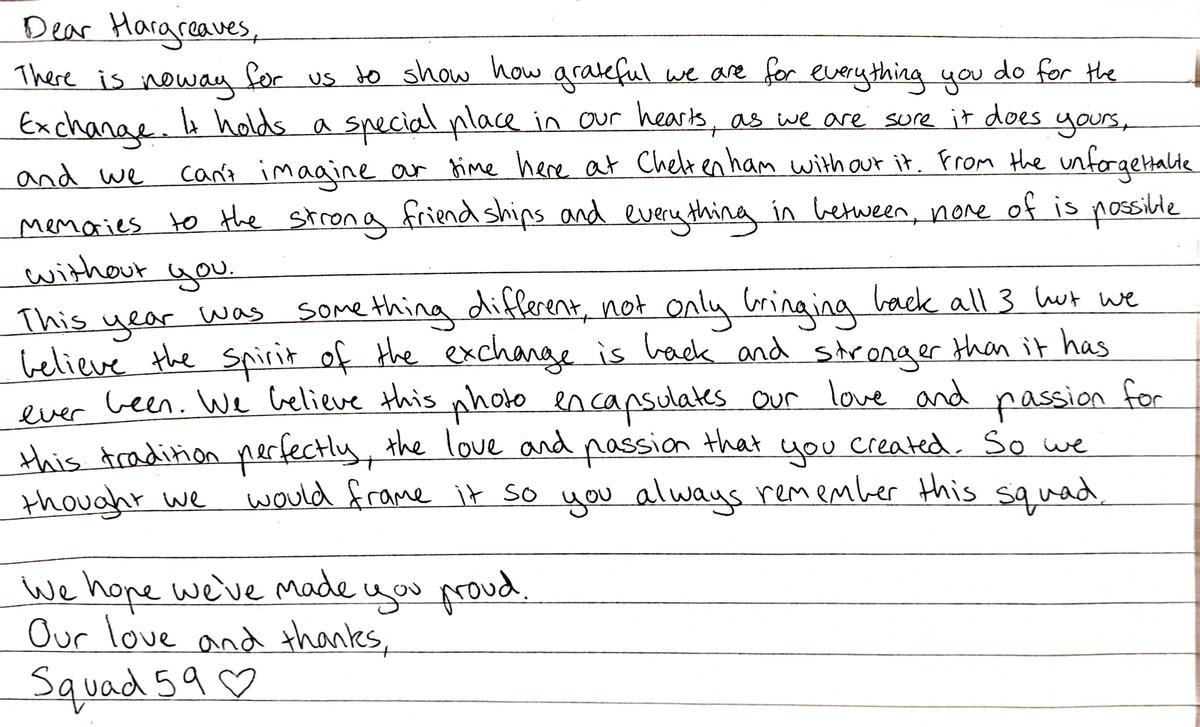 Dear Hargreaves,
There is noway for us to show how grateful we are for everything you do for the
Exchange. It holds a special place in our hearts, as we are sure it does yours,
and we can't imagine our time here at Cheltenham without it. From the unforgettable
memories to the strong friendships and everything in between, none of is possible
without you.
This year was something different, not only bringing back all 3 but we
believe the spirit of the exchange is back and stronger than it has
ever been. We believe this photo encapsulates our love and passion for
this tradition perfectly, the love and passion that you created. So we
thought we would frame it so you always remember this squad.
We hope we've made you proud.
Our love and thanks,
Squad 59 ♡